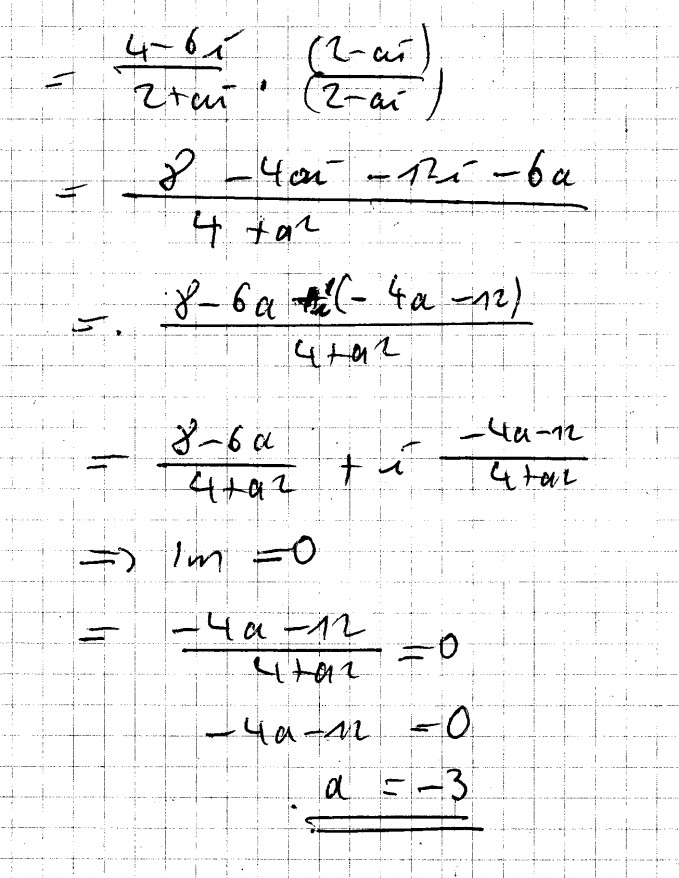 = (4-6i)/(2+ai) · (2-ai)/(2-ai)
= (8 -4ai -12i -6a)/(4+a²)
=. (8-6a +i(-4a-12))/(4+a²)
= (8-6a)/(4+a²) + i (-4a-12)/(4+a²)
=> Im = 0
= (-4a-12)/(4+a²) = 0
-4a-12 = 0
a = -3